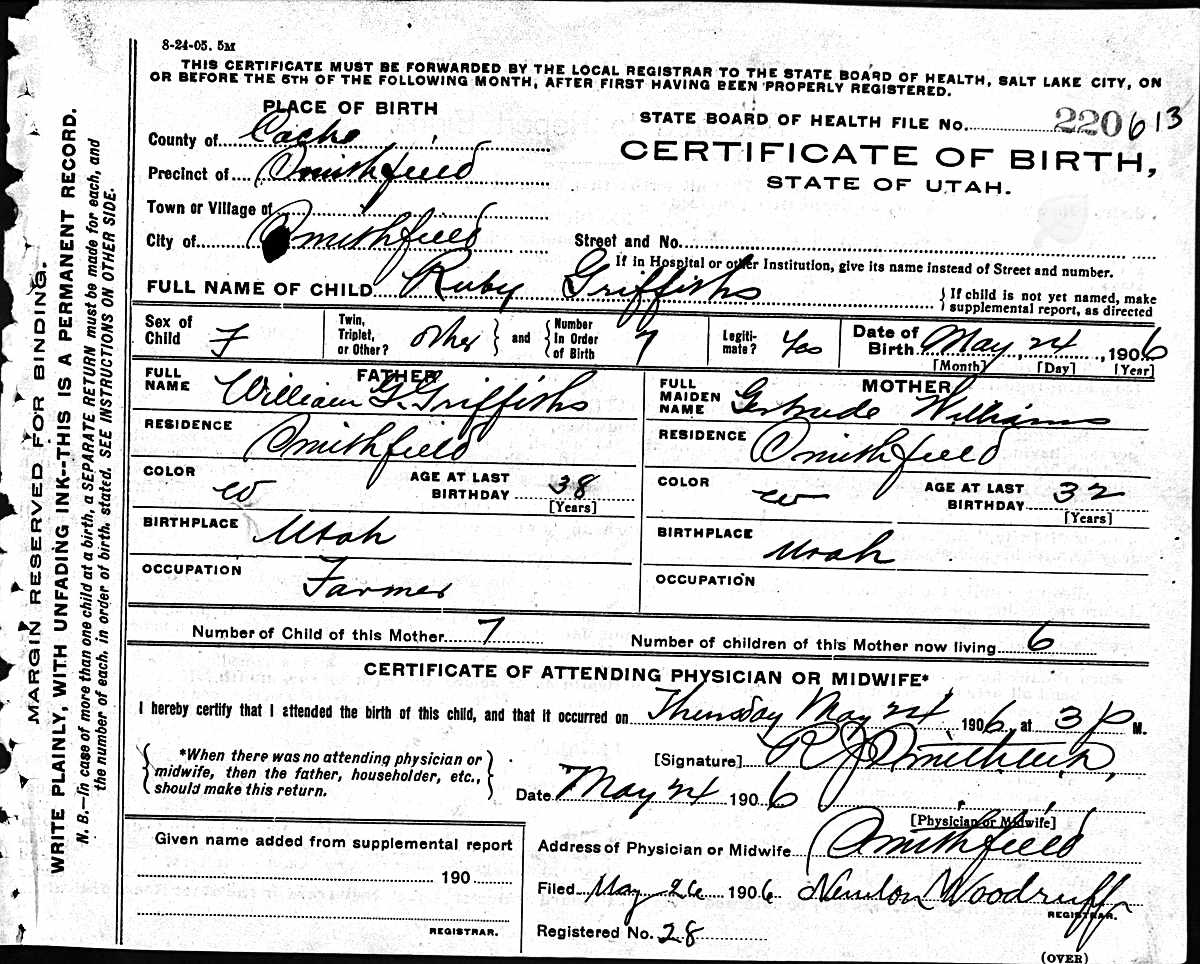 8-24-05. 5M
THIS CERTIFICATE MUST BE FORWARDED BY THE LOCAL REGISTRAR TO THE STATE BOARD OF HEALTH, SALT LAKE CITY, ON
OR BEFORE THE 5TH OF THE FOLLOWING MONTH, AFTER FIRST HAVING BEEN PROPERLY REGISTERED.
PLACE OF BIRTH
STATE BOARD OF HEALTH FILE No. 220613
County of Cache
CERTIFICATE OF BIRTH,
Precinct of Smithfield
STATE OF UTAH.
Town or Village of
City of Smithfield Street and No.
If in Hospital or other Institution, give its name instead of Street and number.
FULL NAME OF CHILD Ruby Griffiths
If child is not yet named, make
supplemental report, as directed
Sex of Child F Twin, Triplet, or Other? other and Number In Order of Birth 7 Legiti- mate? Yes Date of Birth May, 24, 1906
[Month] [Day] [Year]
FATHER
FULL NAME William G. Griffiths
MOTHER
FULL MAIDEN NAME Gertrude Williams
RESIDENCE Smithfield
RESIDENCE Smithfield
COLOR W AGE AT LAST BIRTHDAY 38 [Years]
COLOR W AGE AT LAST BIRTHDAY 32 [Years]
BIRTHPLACE Utah
BIRTHPLACE Utah
OCCUPATION Farmer
OCCUPATION
Number of Child of this Mother 7 Number of children of this Mother now living 6
CERTIFICATE OF ATTENDING PHYSICIAN OR MIDWIFE*
I hereby certify that I attended the birth of this child, and that it occurred on Thursday May 24 1906 at 3 P M.
*When there was no attending physician or
midwife, then the father, householder, etc.,
should make this return.
[Signature] R J
Date May 24 1906
[Physician or Midwife]
Given name added from supplemental report
190
REGISTRAR.
Address of Physician or Midwife Smithfield
Filed May 26 1906 Newton Woodruff
REGISTRAR.
Registered No. 28
(OVER)
MARGIN RESERVED FOR BINDING.
WRITE PLAINLY, WITH UNFADING INK--THIS IS A PERMANENT RECORD.
N. B.—In case of more than one child at a birth, a SEPARATE RETURN must be made for each, and
the number of each, in order of birth, stated. SEE INSTRUCTIONS ON OTHER SIDE.